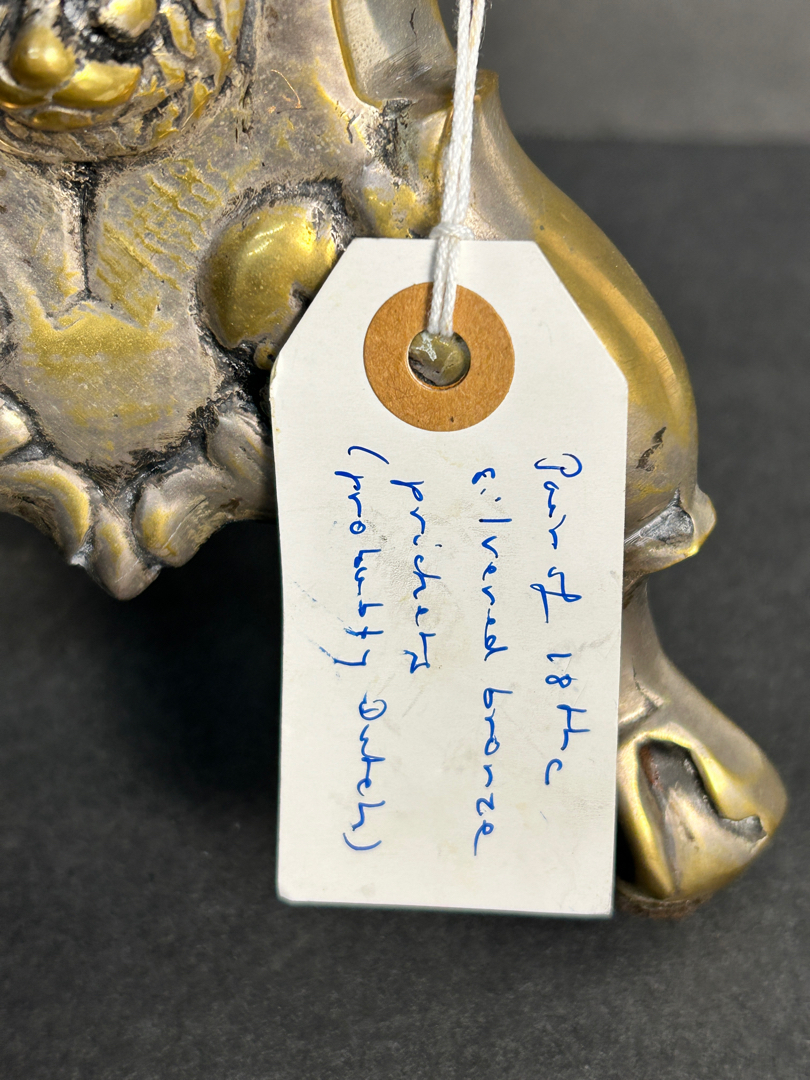 Pair of 18th c
silvered bronze
prickets
(probably Dutch)